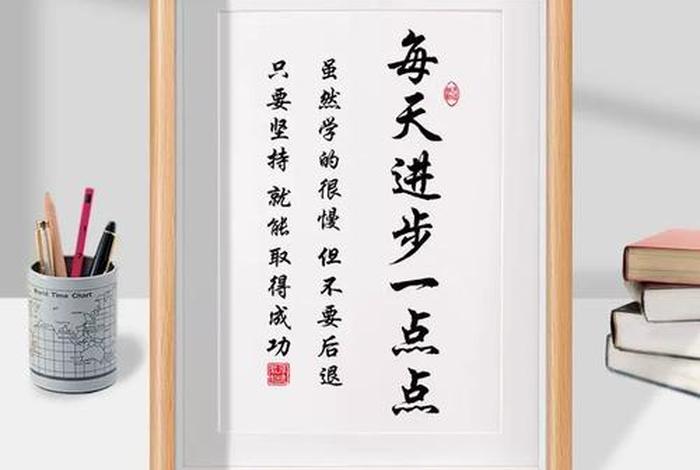 每天进步一点点
虽然学的很慢 但不要后退
只要坚持 就能取得成功
World Time Chart